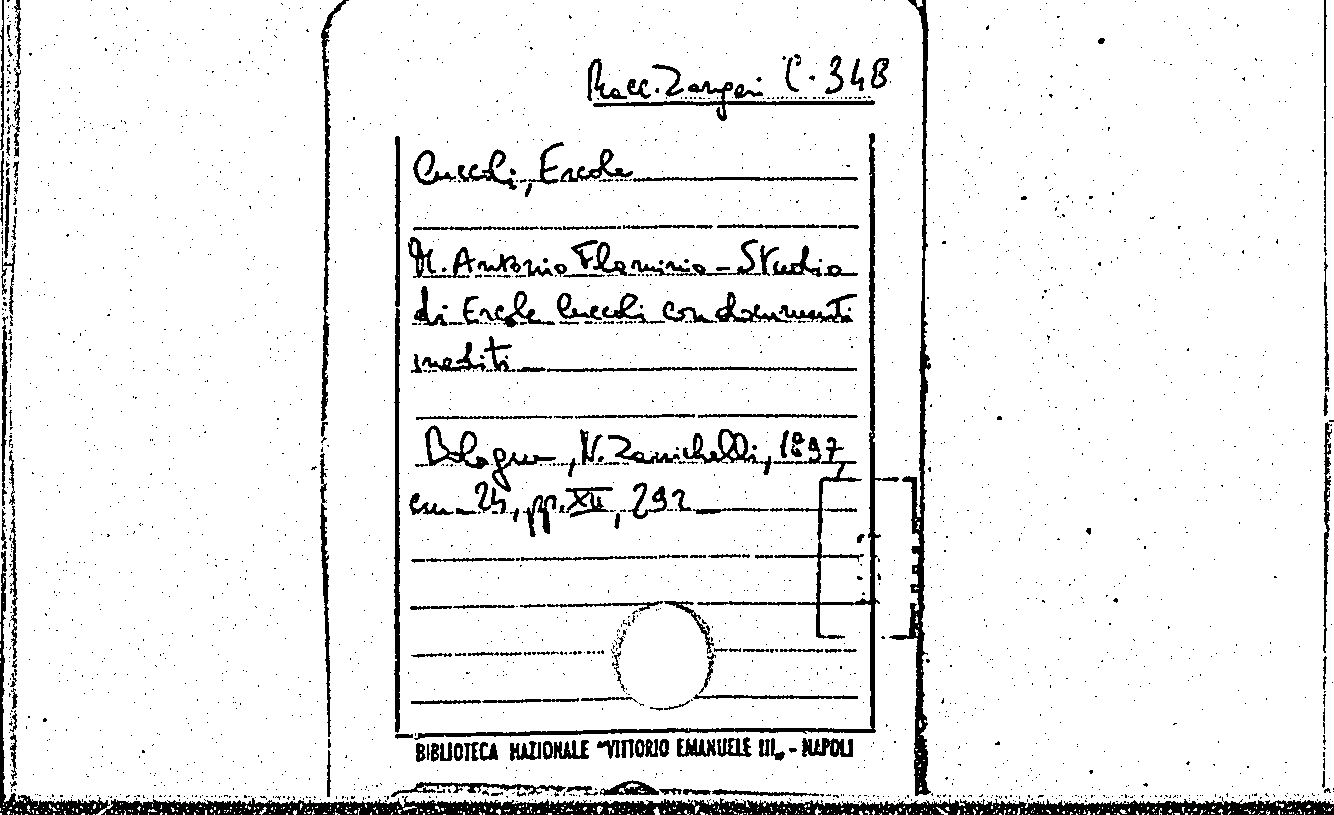 Racc. Zangari C. 348
Cuccoli, Ercole
M. Antonio Flaminio - Studio
di Ercole Cuccoli con documenti
inediti
Bologna, N. Zanichelli, 1897,
cm. 24, pp. XII, 292
BIBLIOTECA NAZIONALE "VITTORIO EMANUELE III„ - NAPOLI